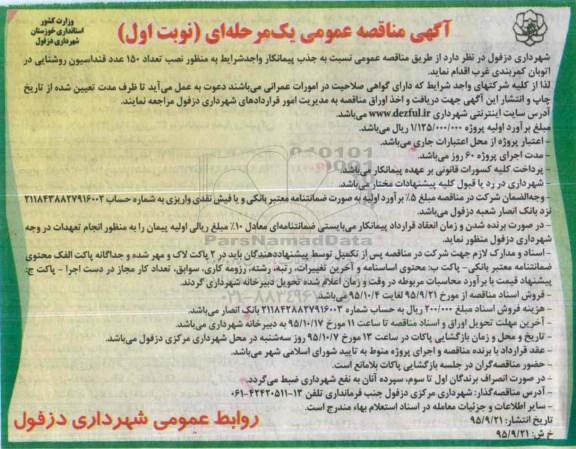 وزارت کشور
استانداری خوزستان
شهرداری دزفول
آگهی مناقصه عمومی یک‌مرحله‌ای (نوبت اول)
شهرداری دزفول در نظر دارد از طریق مناقصه عمومی نسبت به جذب پیمانکار واجدشرایط به منظور نصب تعداد ۱۵۰ عدد فنداسیون روشنایی در
اتوبان کمربندی غرب اقدام نماید.
لذا از کلیه شرکتهای واجد شرایط که دارای گواهی صلاحیت در امورات عمرانی می‌باشند دعوت به عمل می‌آید تا ظرف مدت تعیین شده از تاریخ
چاپ و انتشار این آگهی جهت دریافت و اخذ اوراق مناقصه به مدیریت امور قراردادهای شهرداری دزفول مراجعه نمایند.
آدرس سایت اینترنتی شهرداری www.dezful.ir می‌باشد.
مبلغ برآورد اولیه پروژه ۱/۱۲۵/۰۰۰/۰۰۰ ریال می‌باشد.
- اعتبار پروژه از محل اعتبارات جاری می‌باشد.
- مدت اجرای پروژه ۶۰ روز می‌باشد.
- پرداخت کلیه کسورات قانونی بر عهده پیمانکار می‌باشد.
- شهرداری در رد یا قبول کلیه پیشنهادات مختار می‌باشد.
- وجه‌الضمان شرکت در مناقصه مبلغ ۵٪ برآورد اولیه به صورت ضمانتنامه معتبر بانکی و یا فیش نقدی واریزی به شماره حساب ۲۱۱۸۴۳۸۸۲۷۹۱۶۰۰۲
نزد بانک انصار شعبه دزفول می‌باشد.
- در صورت برنده شدن و زمان انعقاد قرارداد پیمانکار می‌بایستی ضمانتنامه‌ای معادل ۱۰٪ مبلغ ریالی اولیه پیمان را به منظور انجام تعهدات در وجه
شهرداری دزفول منظور نماید.
- اسناد و مدارک لازم جهت شرکت در مناقصه پس از تکمیل توسط پیشنهاددهندگان باید در ۲ پاکت لاک و مهر شده و جداگانه پاکت الف محتوی
ضمانتنامه معتبر بانکی- پاکت ب: محتوی اساسنامه و آخرین تغییرات، رتبه، رشته، رزومه کاری، سوابق، تعداد کار مجاز در دست اجرا - پاکت ج:
پیشنهاد قیمت با برآورد محاسبات مربوطه در وقت و زمان اعلام شده تحویل دبیرخانه شهرداری گردند.
- فروش اسناد مناقصه از مورخ ۹۵/۹/۲۱ لغایت ۹۵/۱۰/۴ می‌باشد.
- هزینه فروش اسناد مبلغ ۲۰۰/۰۰۰ ریال به حساب شماره ۲۱۱۸۴۲۸۸۲۷۹۱۶۰۰۳ بانک انصار می‌باشد.
- آخرین مهلت تحویل اوراق و اسناد مناقصه تا ساعت ۱۱ مورخ ۹۵/۱۰/۱۷ به دبیرخانه شهرداری می‌باشد.
- تاریخ و محل و زمان بازگشایی پاکات در ساعت ۱۳ مورخ ۹۵/۱۰/۷ روز سه‌شنبه در محل شهرداری مرکزی دزفول می‌باشد.
- عقد قرارداد با برنده مناقصه و اجرای پروژه منوط به تایید شورای اسلامی شهر می‌باشد.
- حضور مناقصه‌گران در جلسه بازگشایی پاکات بلامانع است.
- در صورت انصراف برندگان اول تا سوم، سپرده آنان به نفع شهرداری ضبط می‌گردد.
- آدرس مناقصه‌گذار: شهرداری مرکزی دزفول جنب فرمانداری تلفن ۱۳-۴۲۴۲۰۵۱۱-۰۶۱
- سایر اطلاعات و جزئیات معامله در اسناد استعلام بهاء مندرج است.
تاریخ انتشار: ۹۵/۹/۲۱
خ ش: ۹۵/۹/۲۱
روابط عمومی شهرداری دزفول
ParsNamadData